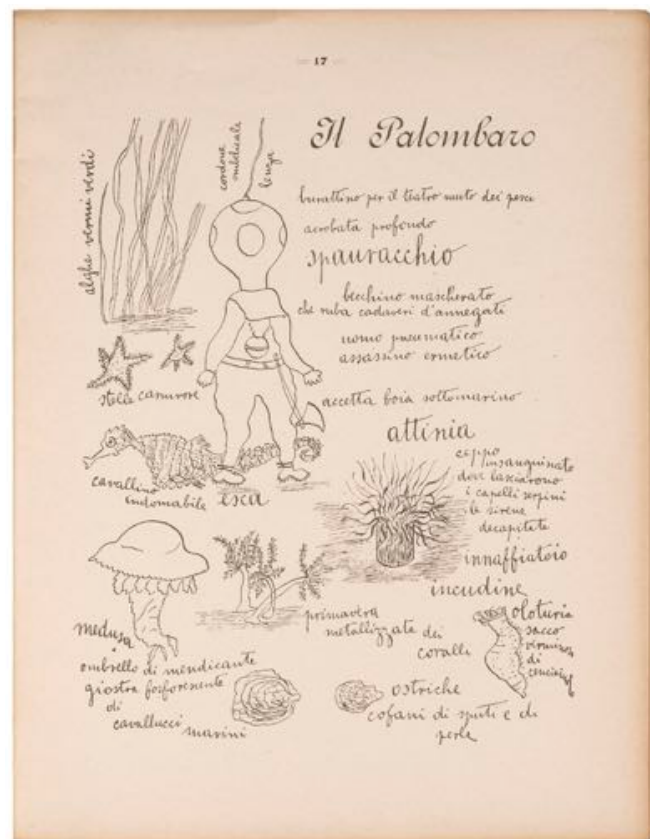 17
Il Palombaro
alghe vermi verdi
cordone
ombelicale
lenza
burattino per il teatro muto dei pesci
acrobata profondo
spauracchio
becchino mascherato
che ruba cadaveri d'annegati
uomo pneumatico
assassino ermetico
stelle carnivore
accetta boia sottomarino
attinia
ceppo
insanguinato
dove lasciarono
i capelli serpini
le sirene
decapitate
cavallino
indomabile
esca
innaffiatoio
incudine
primavera
metallizzata dei
coralli
oloturia
sacco
verminoso
di
medusa
ombrello di mendicante
giostra fosforescente
di
cavallucci
marini
ostriche
cofani di sputi e di
perle